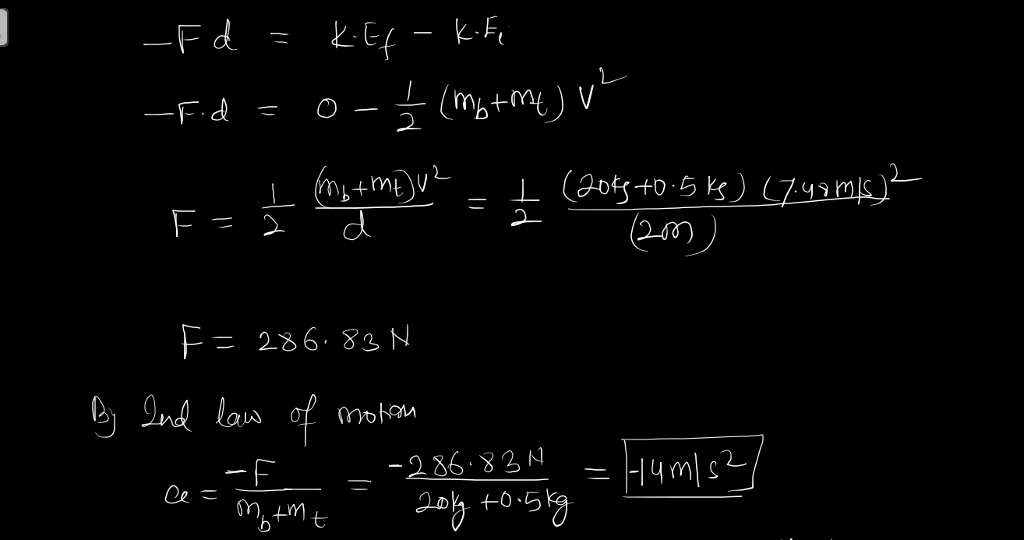 -Fd = K.Ef - K.Ei
-F.d = 0 - 1/2 (mb+mt) V²
F = 1/2 (mb+mt)V²/d = 1/2 (20kg+0.5kg) (7.48m/s)²/(2m)
F = 286.83 N
By 2nd law of motion
a = -F/mb+mt = -286.83N/20kg+0.5kg = -14m/s²